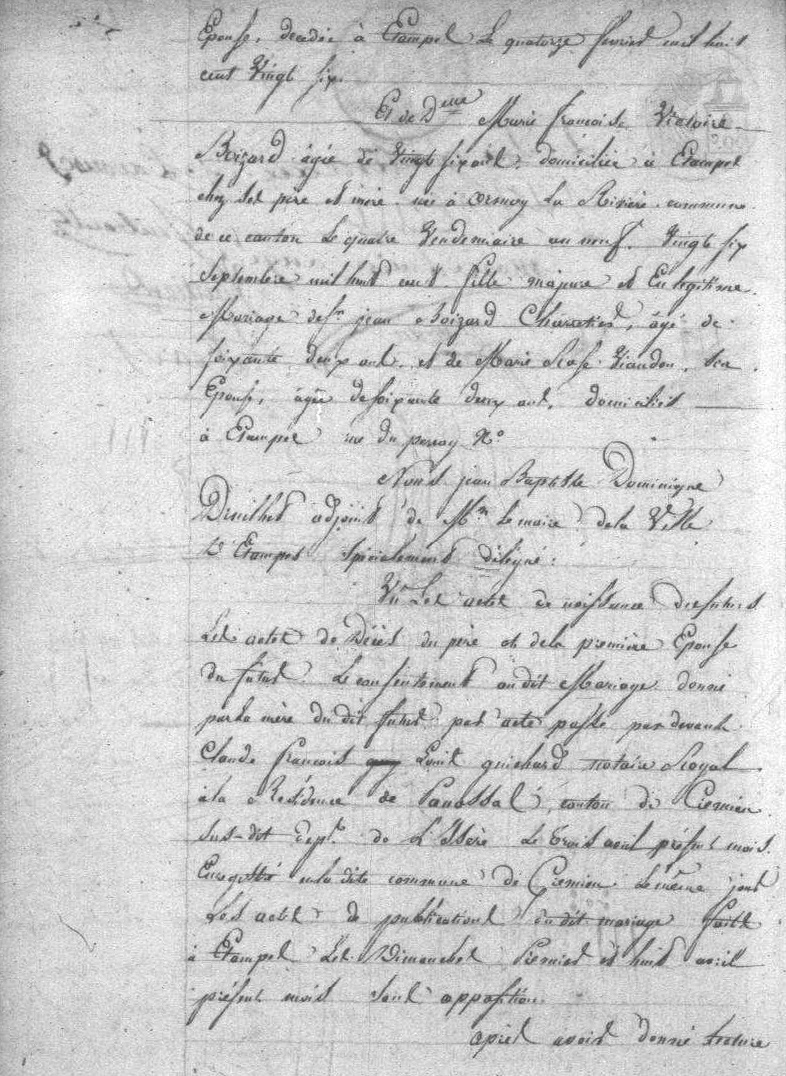 Epouse, decedée à Etampes le quatorze fevrier mil huit
cent Vingt six.
Et de Delle Marie françoise Victoire
Boizard âgée de Vingt six ans, domiciliée à Etampes
chez ses père et mère, née à ormoy La Rivière commune
de ce canton Le quatre Vendemiaire an neuf. Vingt six
Septembre mil huit cent. fille majure et En légitime
Mariage de Sr jean Boizard Charretier, âgé de
soixante deux ans, et de Marie Rose Viandon, son
Epouse, âgée de soixante deux ans, domiciliés
à Etampes rue du perray No
Nous jean Baptiste Dominique
adjoint de Mr Le maire de la Ville
D'Etampes spécialement délégué :
Vu Les actes de naissance des futurs
Les actes de Décès du père et de la première Epouse
du futur. Le consentement au dit Mariage donné
par la mère du dit futur par acte passé par devant
Claude françois Louis guichard notaire Royal
à la Résidence de Panossas, canton de Crémieu
sus-dit dept de L'Isère Le trois avril présent mois
Enregistré en la dite commune de Crémieu Le même jour
Les actes de publications du dit mariage faites
à Etampes Les Dimanches Premier et huit avril
présent mois sans opposition.
après avoir donné lecture